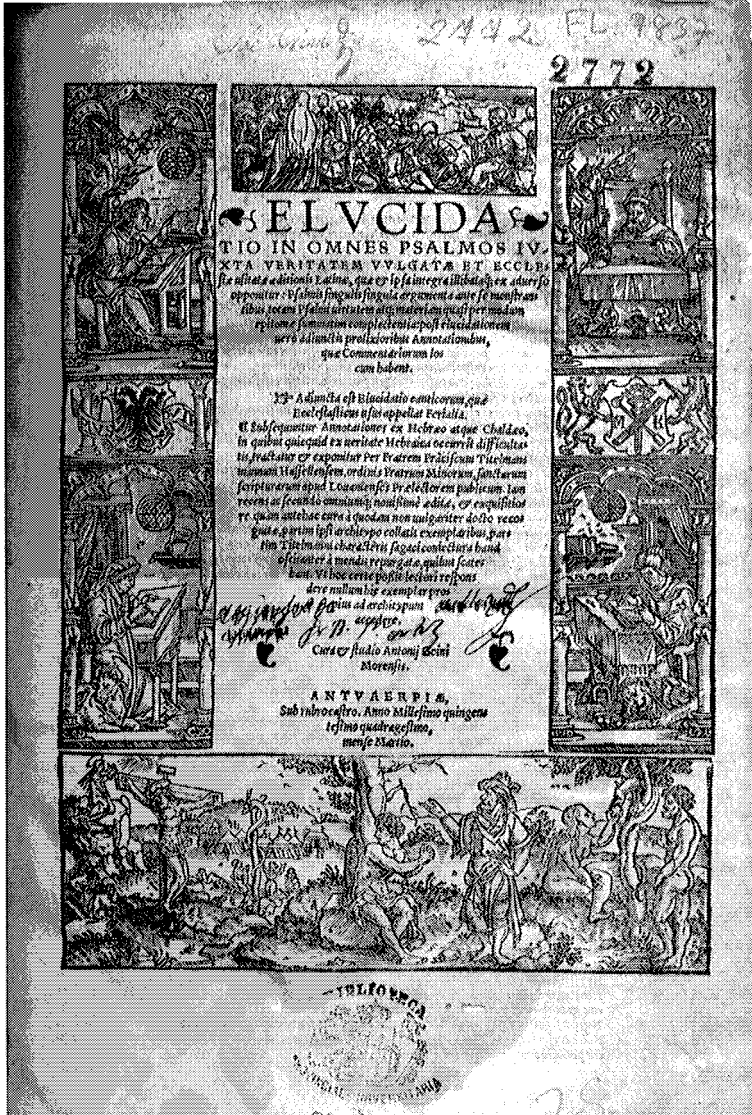 2442 FL. 9837
2772
ELVCIDA
TIO IN OMNES PSALMOS IV-
XTA VERITATEM VVLGATÆ ET ECCLE-
siæ usitatæ æditionis Latinæ, quæ & ipsa integra illibataq; ex aduerso
opponitur: Psalmis singulis singula argumenta ante se monstran
tibus totam Psalmi uirtutem atq; materiam quasi per modum
epitomæ summatim complectentia: post elucidationem
uero adiunctis prolixioribus Annotationibus,
quæ Commentariorum lo
cum habent.
Adiuncta est Elucidatio canticorum, quæ
Ecclesiasticus usus appellat Ferialia.
Subsequuntur Annotationes ex Hebræo atque Chaldæo,
in quibus quicquid ex ueritate Hebraica occurrit difficulta-
tis, tractatur & exponitur Per Fratrem Franciscum Titelman-
num Hassellensem, ordinis Fratrum Minorum, sanctarum
scripturarum apud Louanienses Prælectorem publicum. Iam
recens ac secundo omniumq; nouissime ædita, & exquisitio
re quam antehac cura à quodam non uulgariter docto recog
nita, partim ipsi archetypo collatis exemplaribus, par
tim Titelmanni characteris sagaci coniectura haud
oscitanter à mendis repurgata, quibus scate
bant. Vt hoc certe possit lectori respon
dere nullum his exemplar pro
pius ad archetypum
accedere.
Cura & studio Antonij
Morensis.
ANTVAERPIÆ,
Sub rubro castro. Anno Millesimo quingen
tesimo quadragesimo,
mense Martio.
BIBLIOTECA
UNIVERSITARIA